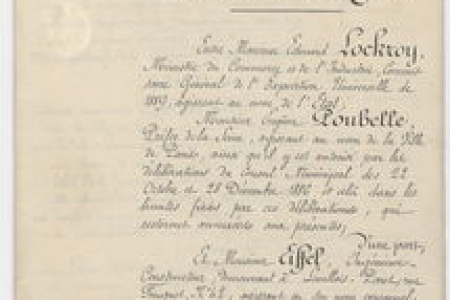 Entre Monsieur Edouard Lockroy,
Ministre du Commerce et de l'Industrie, Commis-
saire Général de l'Exposition Universelle de
1889, agissant au nom de l'Etat,
Monsieur Eugène Poubelle,
Préfet de la Seine, agissant au nom de la Ville
de Paris, ainsi qu'il y est autorisé par les
délibérations du Conseil Municipal des 22
Octobre et 28 Décembre 1886 et cela dans les
limites fixées par ces délibérations, qui
resteront annexées aux présentes,
D'une part,
Et Monsieur Eiffel, Ingénieur
Constructeur, demeurant à Levallois-Perret, rue
Fouquet, N° 42, agissant en son nom personnel,